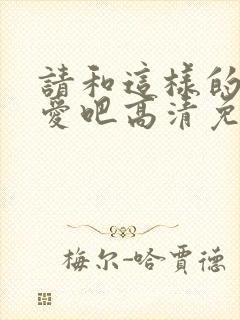 請和這樣的
愛吧高清免
梅尔-哈賈德